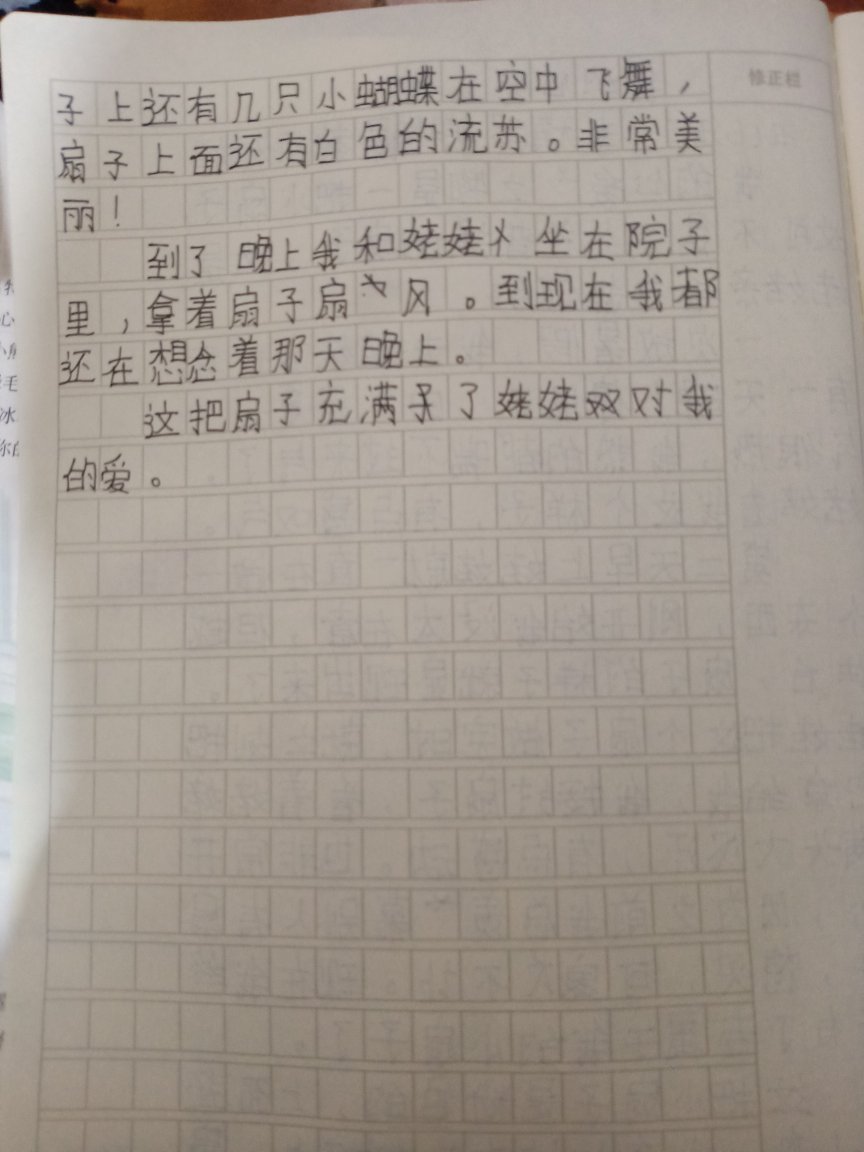 子上还有几只小蝴蝶在空中飞舞，
修正栏
扇子上面还有白色的流苏。非常美
丽！
到了晚上我和姥姥坐在院子
里，拿着扇子扇风。到现在我都
还在想念着那天晚上。
这把扇子充满了姥姥对我
的爱。